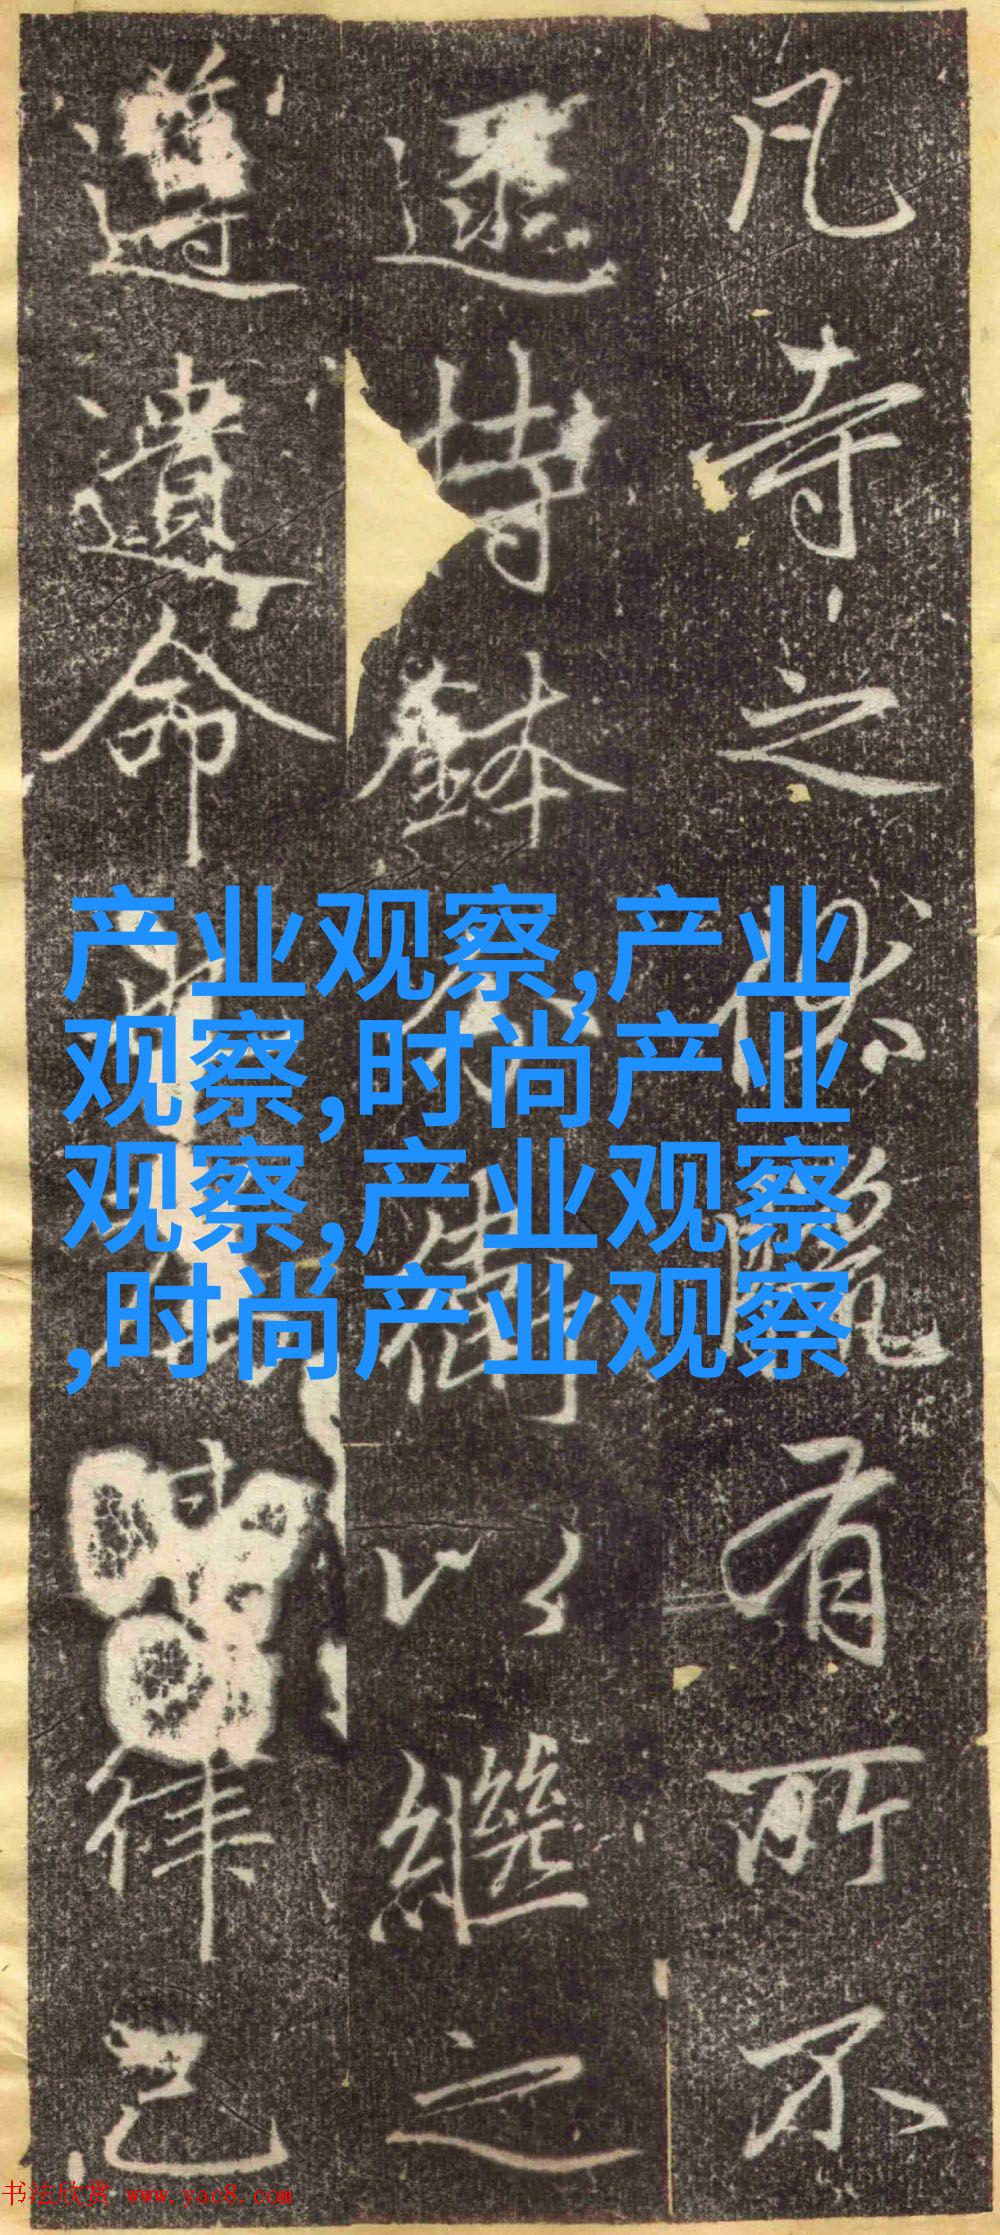 凡寺之供贍有所不
遝持鉢
以繼之
遵遺命
律己
产业观察,产业
观察,时尚产业
观察,产业观察
,时尚产业观察
书法欣赏 www.yac8.com